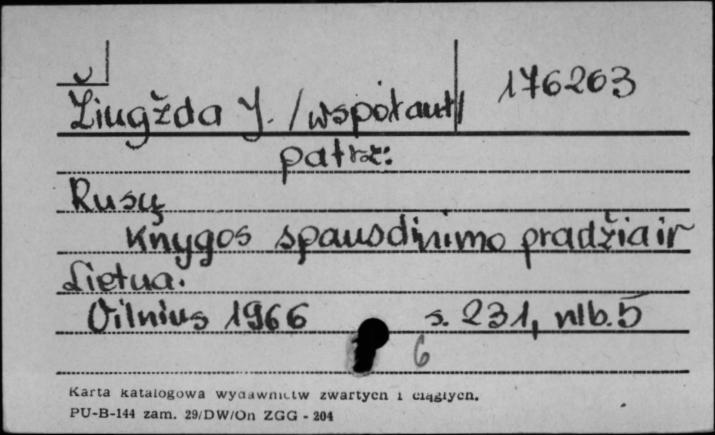 176263
Žiugžda J. /wspołaut/
patrz:
Rusų
knygos spausdinimo pradžia ir
Lietua.
Vilnius 1966 s. 231, nlb. 5
6
Karta katalogowa wydawnictw zwartych i ciągłych.
PU-B-144 zam. 29/DW/On ZGG - 204